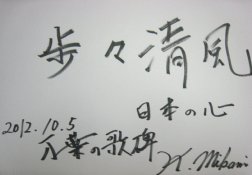 歩々清風
日本の心
2012.10.5
万葉の歌碑
K. Mikami